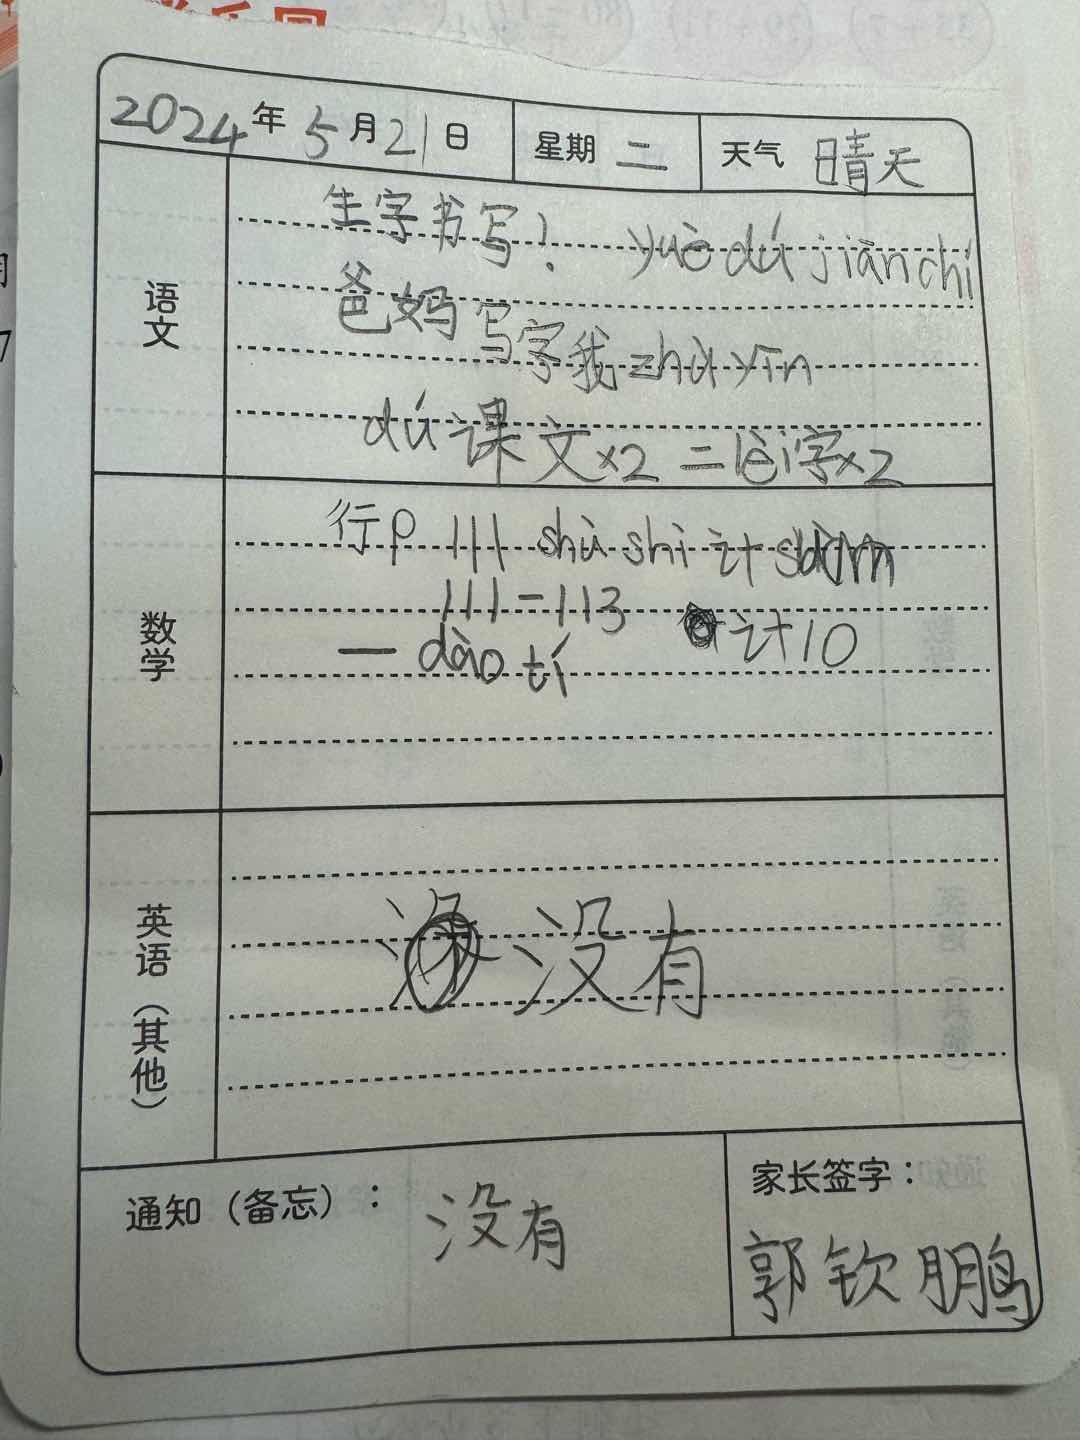 2024年5月21日 星期二 天气 晴天
语文
生字书写! yuè dú jiān chí
爸妈写字我zhù yīn
dú课文×2 二lèi字×2
数学
行P 111 shù shì 计
111-113 计10
一 dào tí
英语（其他）
没有
通知（备忘）：没有
家长签字：
郭钦鹏